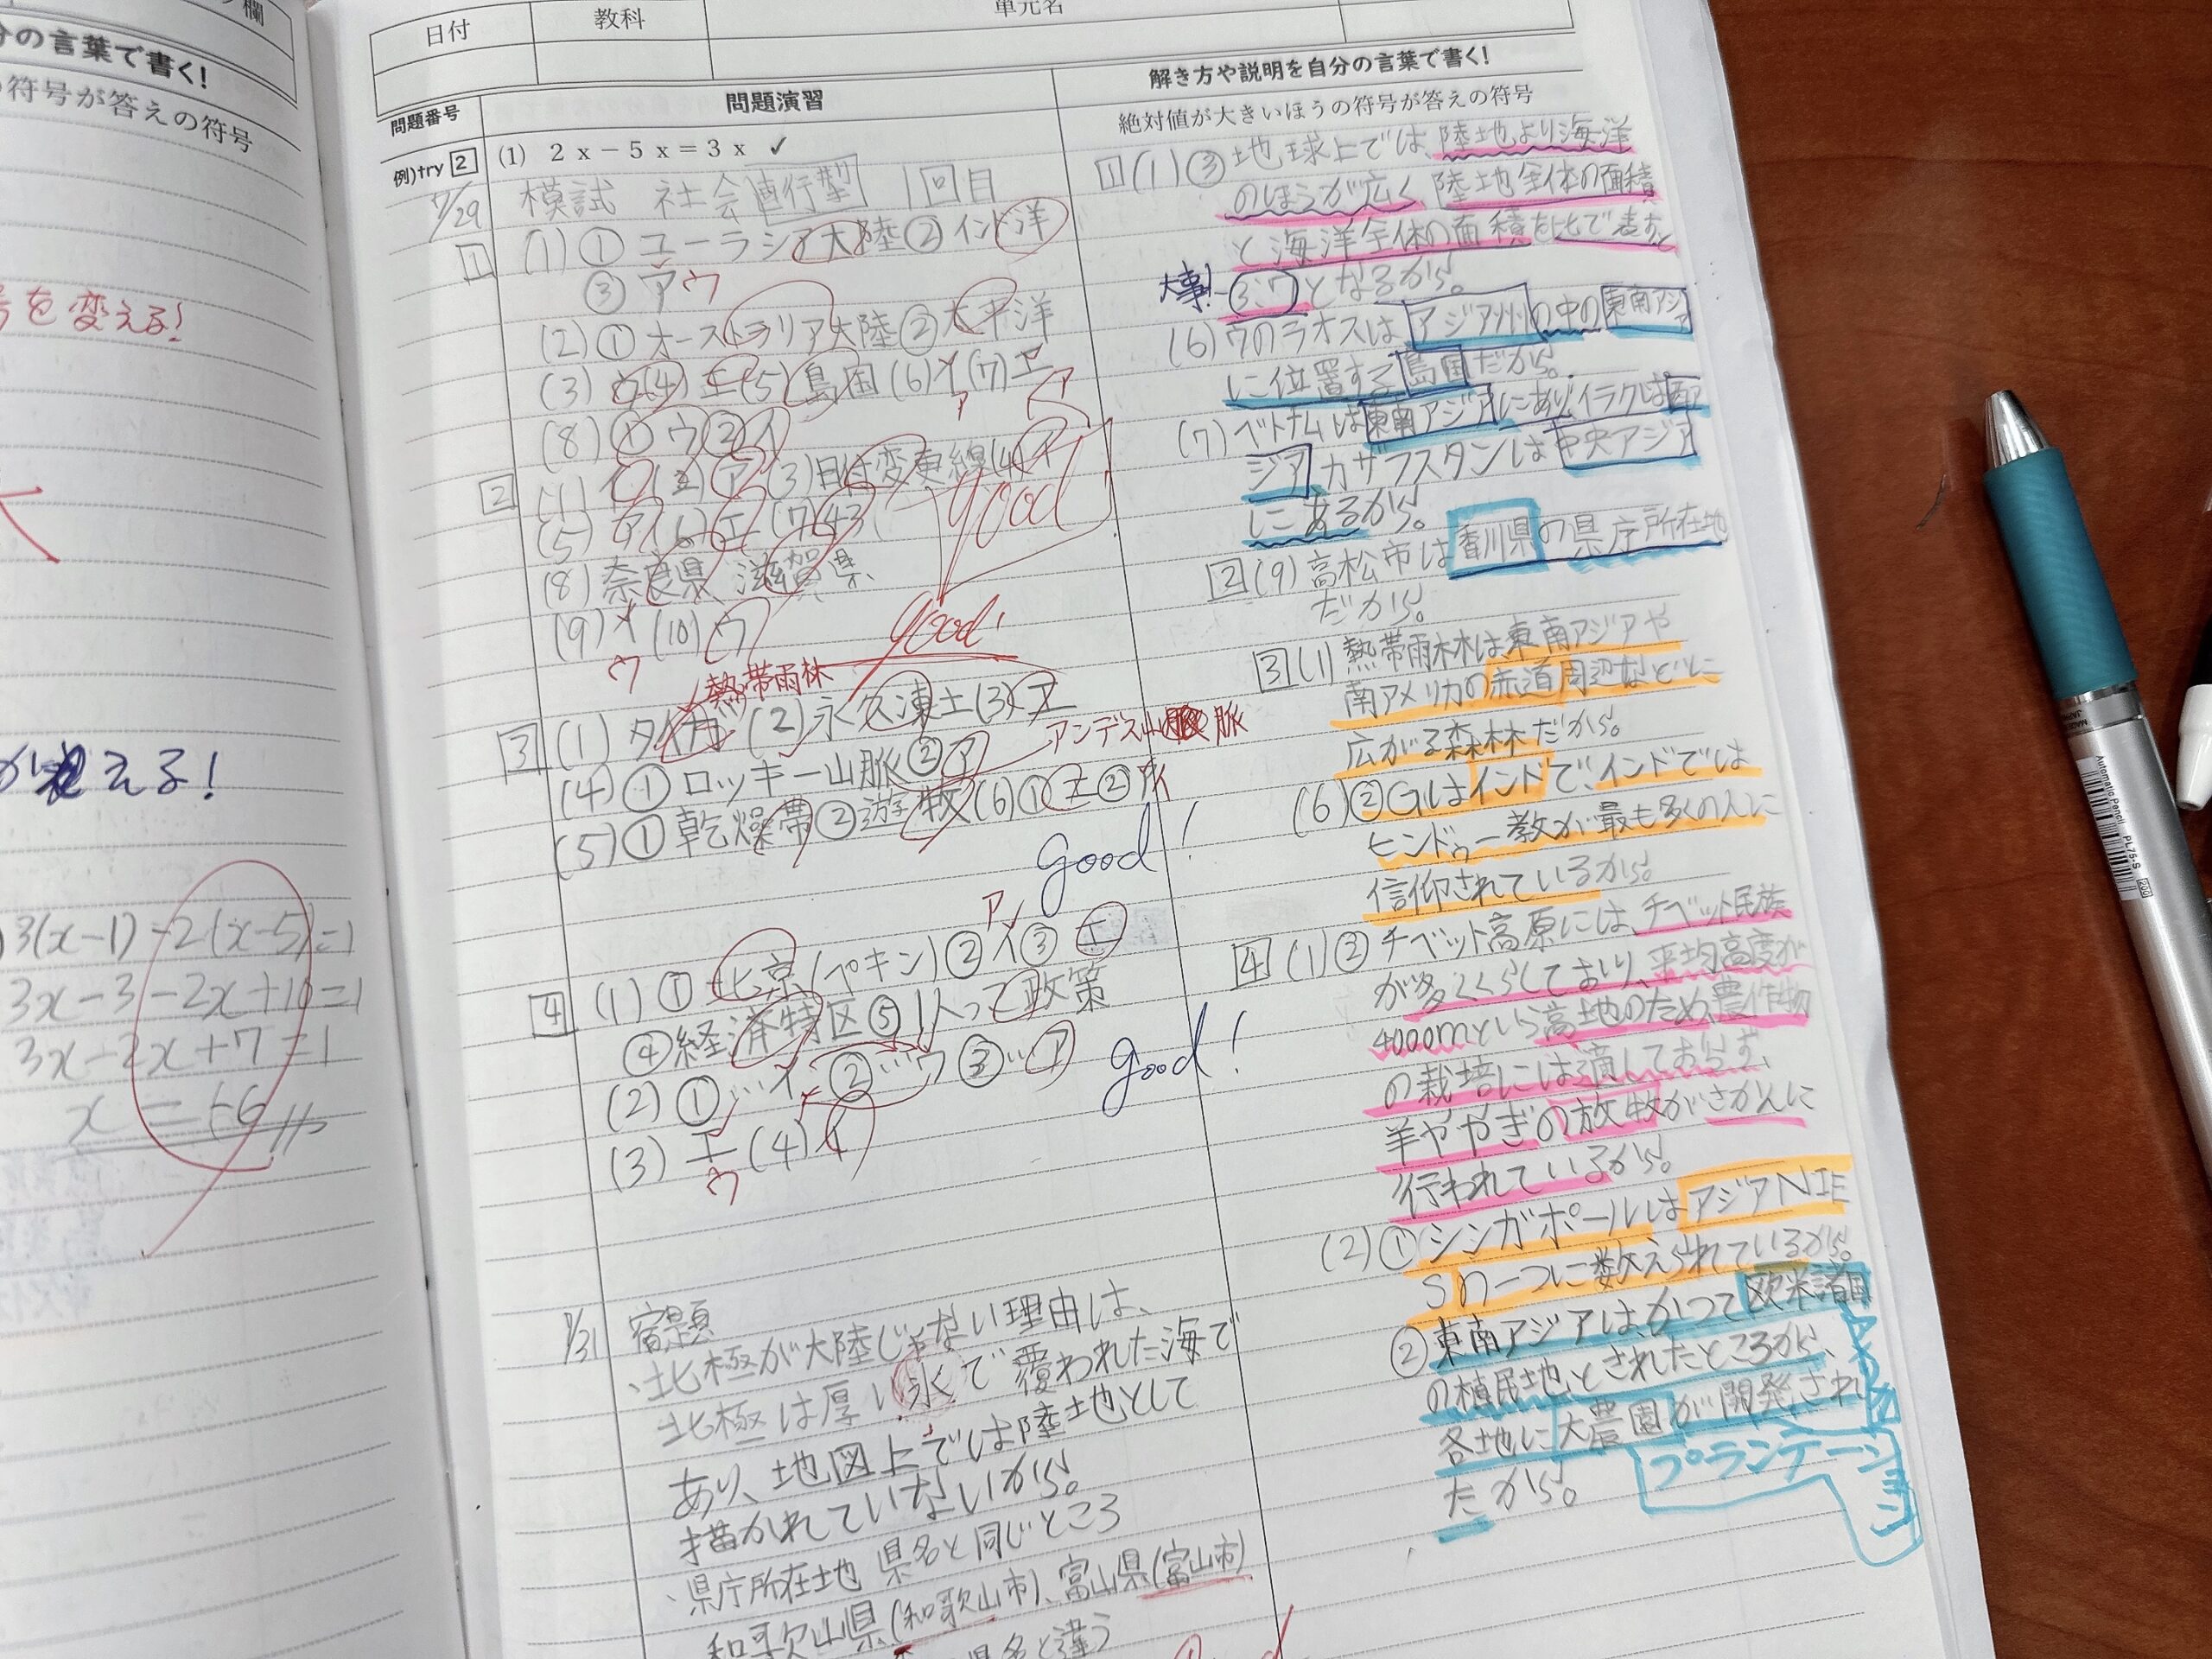 欄
分の言葉で書く!
の符号が答えの符号
号を変える!
が見える!
3(x-1)-2(x-5)=1
3x-3-2x+10=1
3x-2x+7=1
x=-6
日付 教科 単元名
問題番号 問題演習 解き方や説明を自分の言葉で書く!
絶対値が大きいほうの符号が答えの符号
例)try 2 (1) 2x-5x=3x ✓
7/29 模試 社会 直行型 1回目
1 (1) ① ユーラシア大陸 ② インド洋
③ ア ウ
(2) ① オーストラリア大陸 ② 太平洋
(3) ウ (4) エ (5) 島国 (6) イ (7) エ
ア ア
(8) ① ウ ② イ
2 (1) イ (2) ア (3) 日付変更線 (4) ア
(5) イ (6) エ (7) 43
good
(8) 奈良県 滋賀県
(9) イ (10) ウ
ウ
good!
熱帯雨林
3 (1) タイガ (2) 永久凍土 (3) エ
(4) ① ロッキー山脈 ② ア
アンデス山脈
(5) ① 乾燥帯 ② 遊牧 (6) ① エ ②
good!
ア
4 (1) ① 北京(ペキン) ② イ ③ エ
④ 経済特区 ⑤ 一人っ子政策
(2) ①…イ ②…ウ ③…ア
good!
(3) エ (4) イ
ウ
7/31 宿題
、北極が大陸じゃない理由は、
北極は厚い氷で覆われた海で
あり、地図上では陸地として
描かれていないから。
、県庁所在地 県名と同じところ
和歌山県(和歌山市)、富山県(富山市)
県名と違う
1 (1) ③ 地球上では、陸地より海洋
のほうが広く 陸地全体の面積
と海洋全体の面積を比で表すと
大事! 3:7となるから。
(6) ウのラオスは アジア州の中の東南アジア
に位置する島国だから。
(7) ベトナムは東南アジアにあり イラクは西ア
ジア、カザフスタンは中央アジア
にあるから。
2 (9) 高松市は香川県の県庁所在地
だから。
3 (1) 熱帯雨林は東南アジアや
南アメリカの赤道周辺などに
広がる森林だから。
(6) ② Gはインドで、インドでは
ヒンドゥー教が最も多くの人に
信仰されているから。
4 (1) ② チベット高原には、チベット民族
が多くくらしており、平均高度が
4000mという高地のため、農作物
の栽培には適しておらず、
羊ややぎの放牧がさかんに
行われているから。
(2) ① シンガポールはアジアNIE
Sの一つに数えられているから。
② 東南アジアは、かつて欧米諸国
の植民地とされたところから、
各地に大農園が開発され
たから。
プランテーション
Automatic Pencil PL75-S